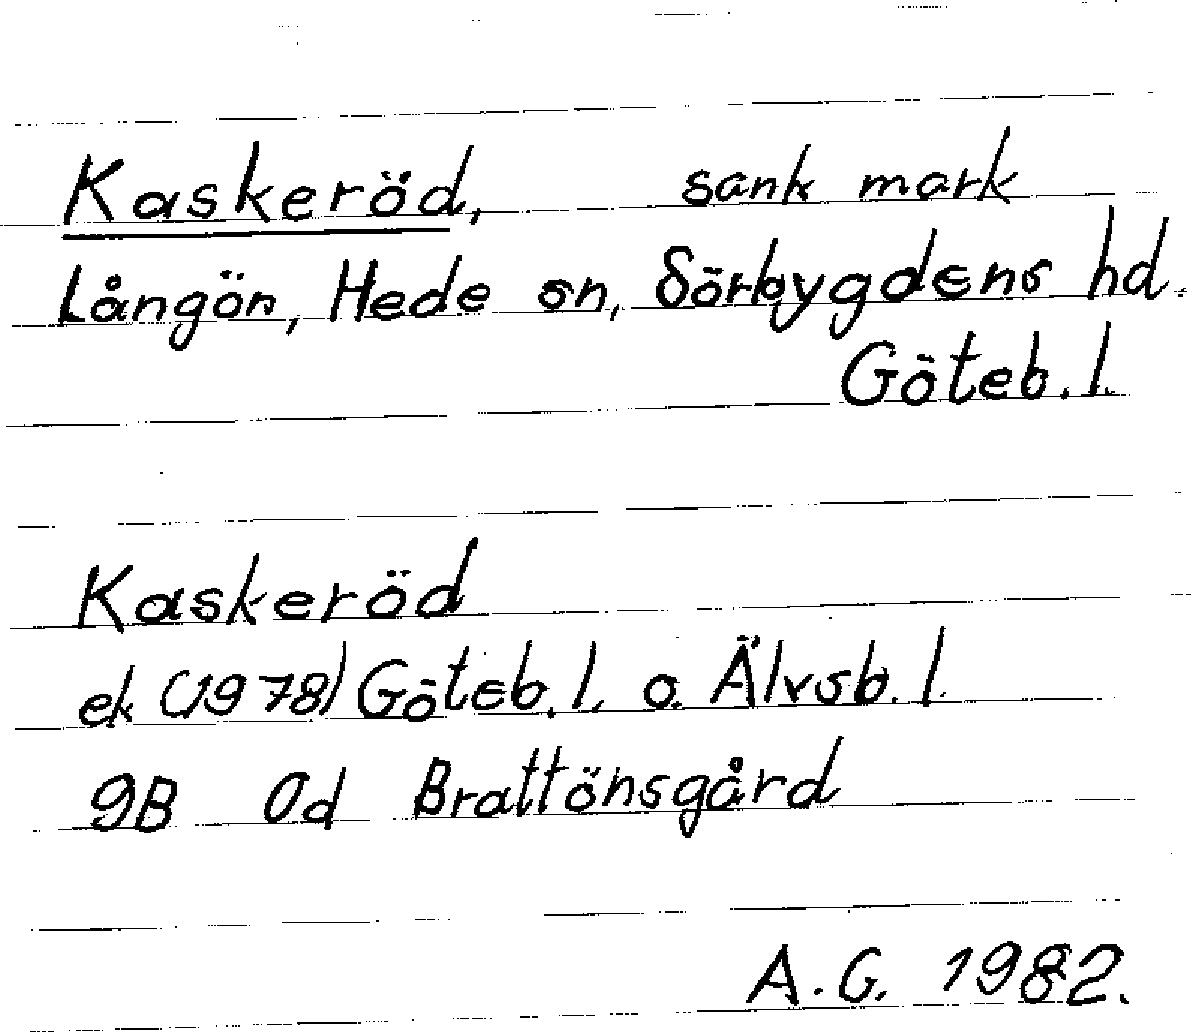 Kaskeröd, sank mark
Långön, Hede sn, Sörbygdens hd.
Göteb. l.
Kaskeröd
ek (1978) Göteb. l. o. Älvsb. l.
9B 0d Brattönsgård
A. G. 1982.